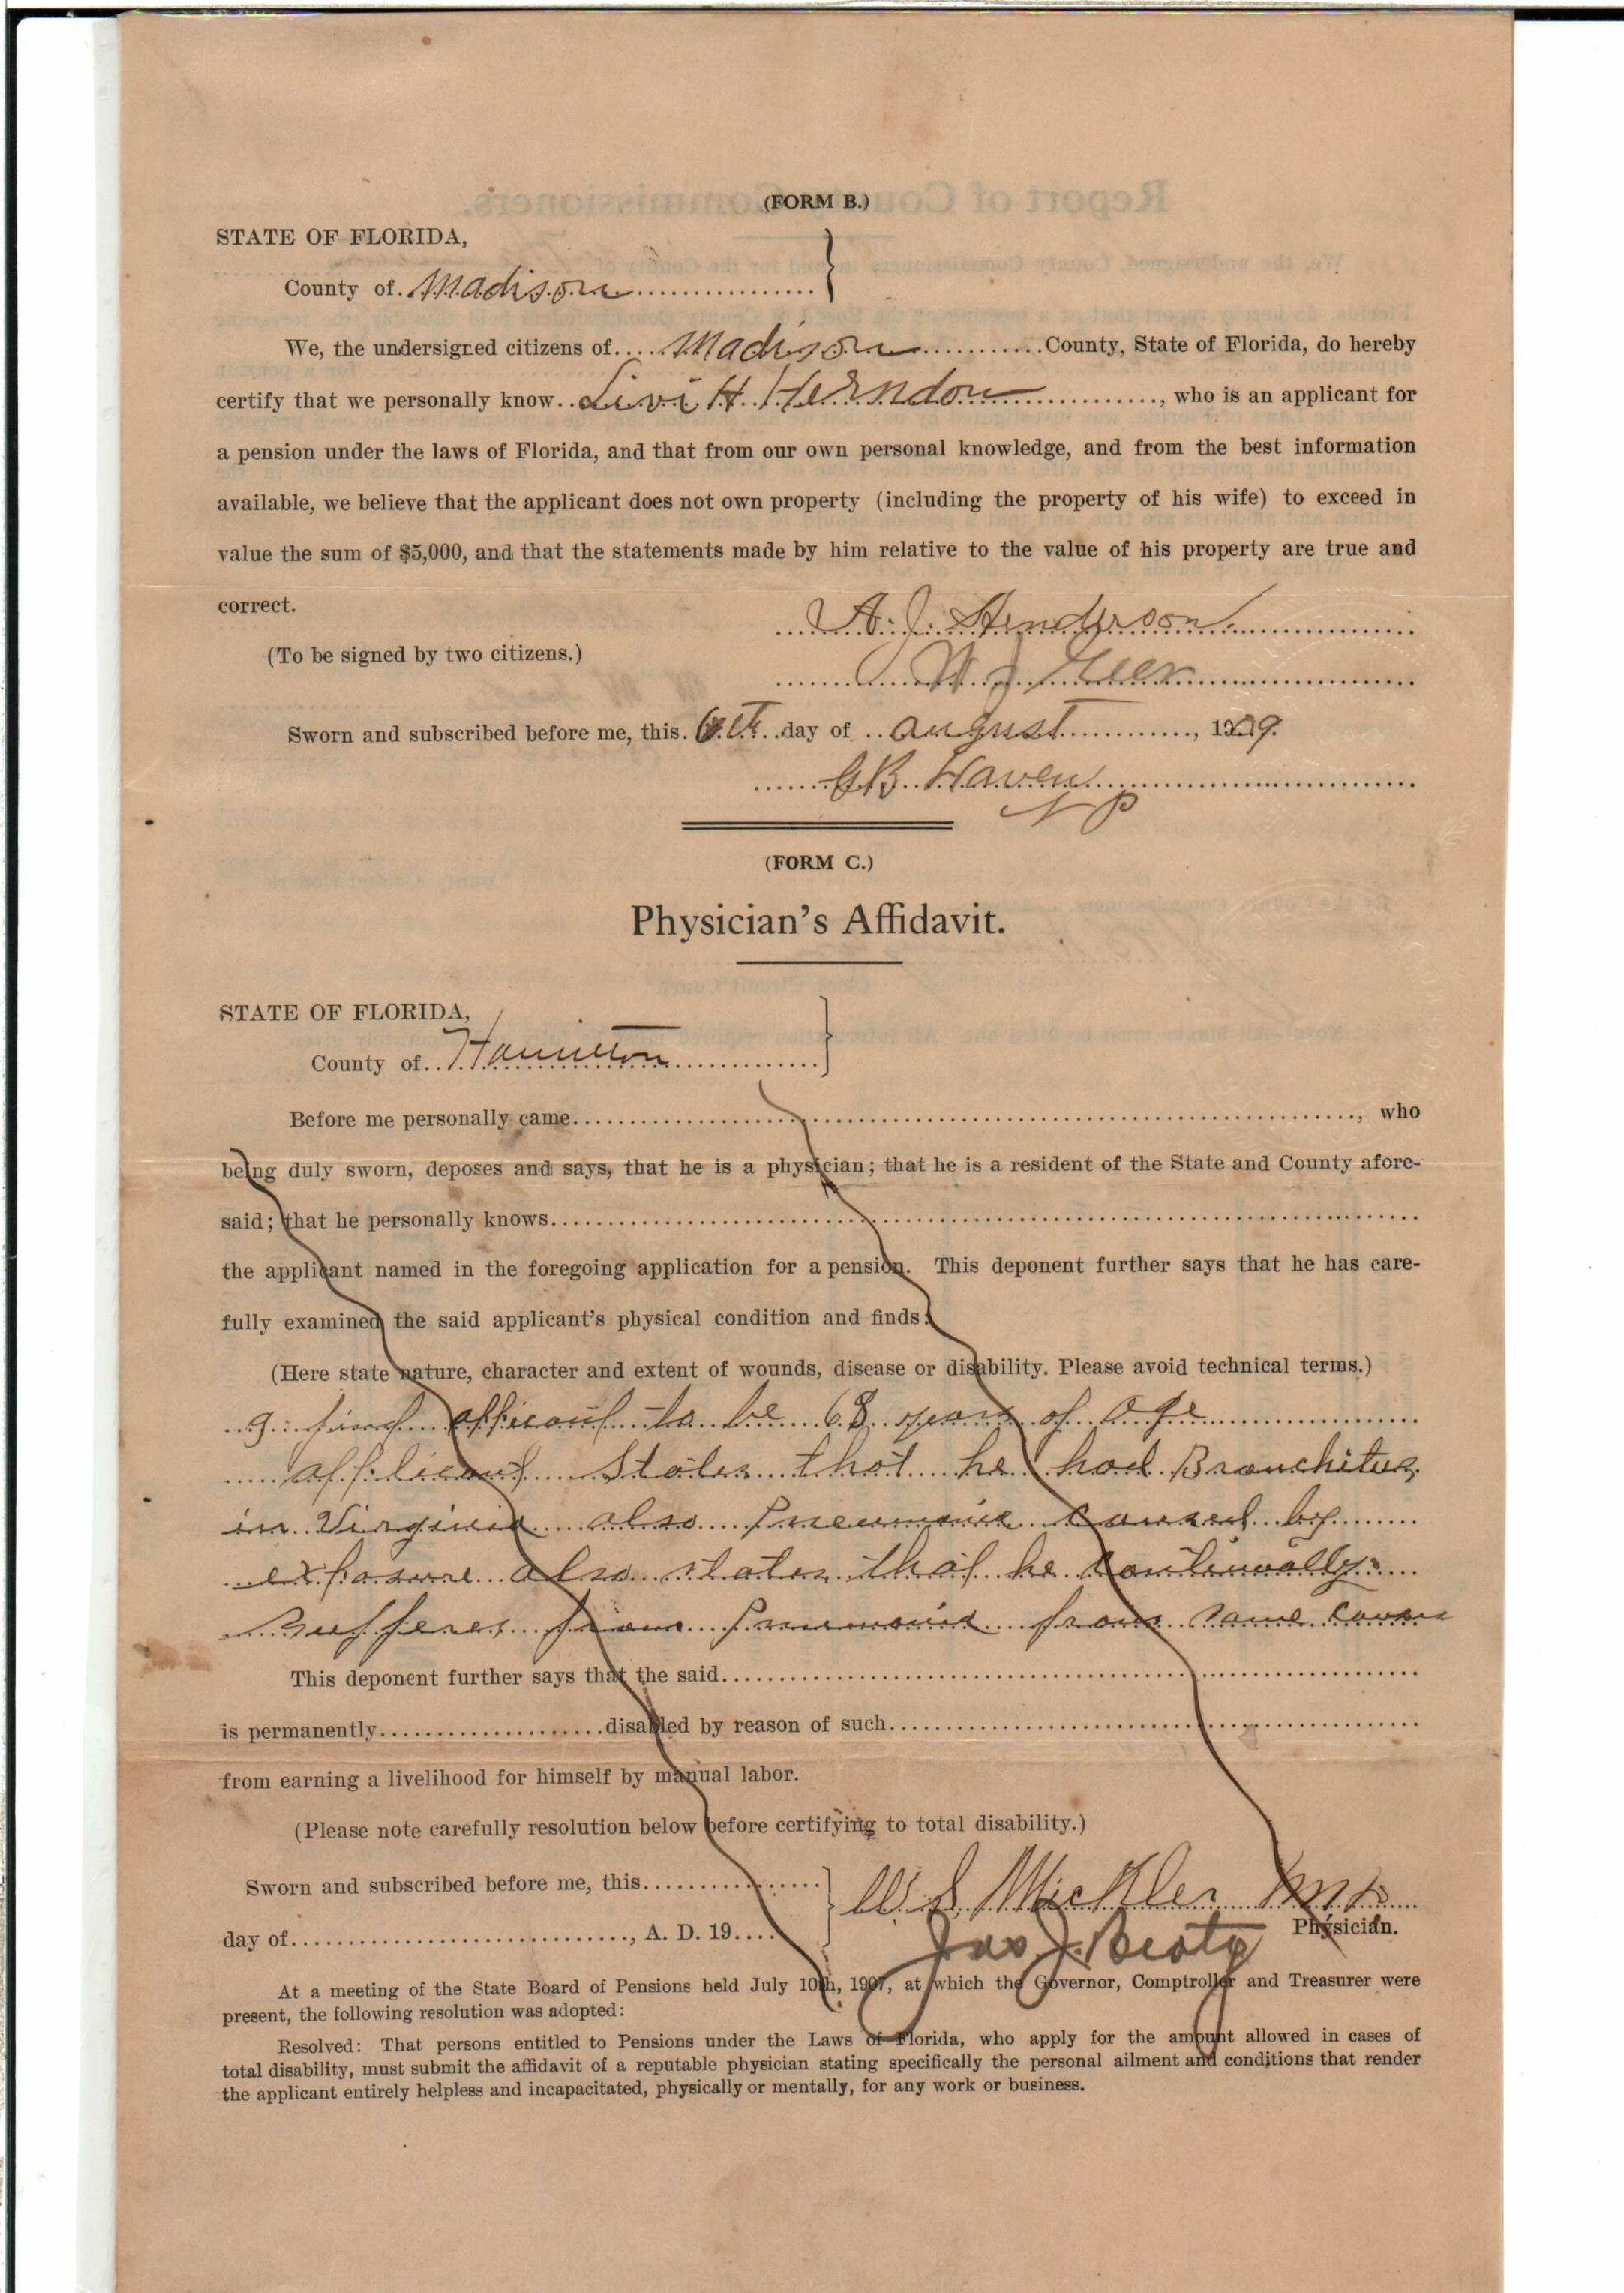 (FORM B.)
STATE OF FLORIDA,
County of Madison
We, the undersigned citizens of Madison County, State of Florida, do hereby
certify that we personally know Livi H Herndon, who is an applicant for
a pension under the laws of Florida, and that from our own personal knowledge, and from the best information
available, we believe that the applicant does not own property (including the property of his wife) to exceed in
value the sum of $5,000, and that the statements made by him relative to the value of his property are true and
correct.
A. J. Henderson
(To be signed by two citizens.)
W J
Sworn and subscribed before me, this day of august, 1909.
G B Haven
N P
(FORM C.)
Physician's Affidavit.
STATE OF FLORIDA,
County of Hamilton
Before me personally came, who
being duly sworn, deposes and says, that he is a physician; that he is a resident of the State and County afore-
said; that he personally knows
the applicant named in the foregoing application for a pension. This deponent further says that he has care-
fully examined the said applicant's physical condition and finds:
(Here state nature, character and extent of wounds, disease or disability. Please avoid technical terms.)
I find applicant to be 68 years of age
applicant states that he had Bronchitus
in Virginia also Pneumonia caused by
exposure also states that he continually
suffers from Pneumonia from same cause
This deponent further says that the said
is permanently disabled by reason of such
from earning a livelihood for himself by manual labor.
(Please note carefully resolution below before certifying to total disability.)
Sworn and subscribed before me, this
W. S. Mickler M D
Physician.
day of, A. D. 19
Jas J. Beaty
At a meeting of the State Board of Pensions held July 10th, 1907, at which the Governor, Comptroller and Treasurer were
present, the following resolution was adopted:
Resolved: That persons entitled to Pensions under the Laws of Florida, who apply for the amount allowed in cases of
total disability, must submit the affidavit of a reputable physician stating specifically the personal ailment and conditions that render
the applicant entirely helpless and incapacitated, physically or mentally, for any work or business.